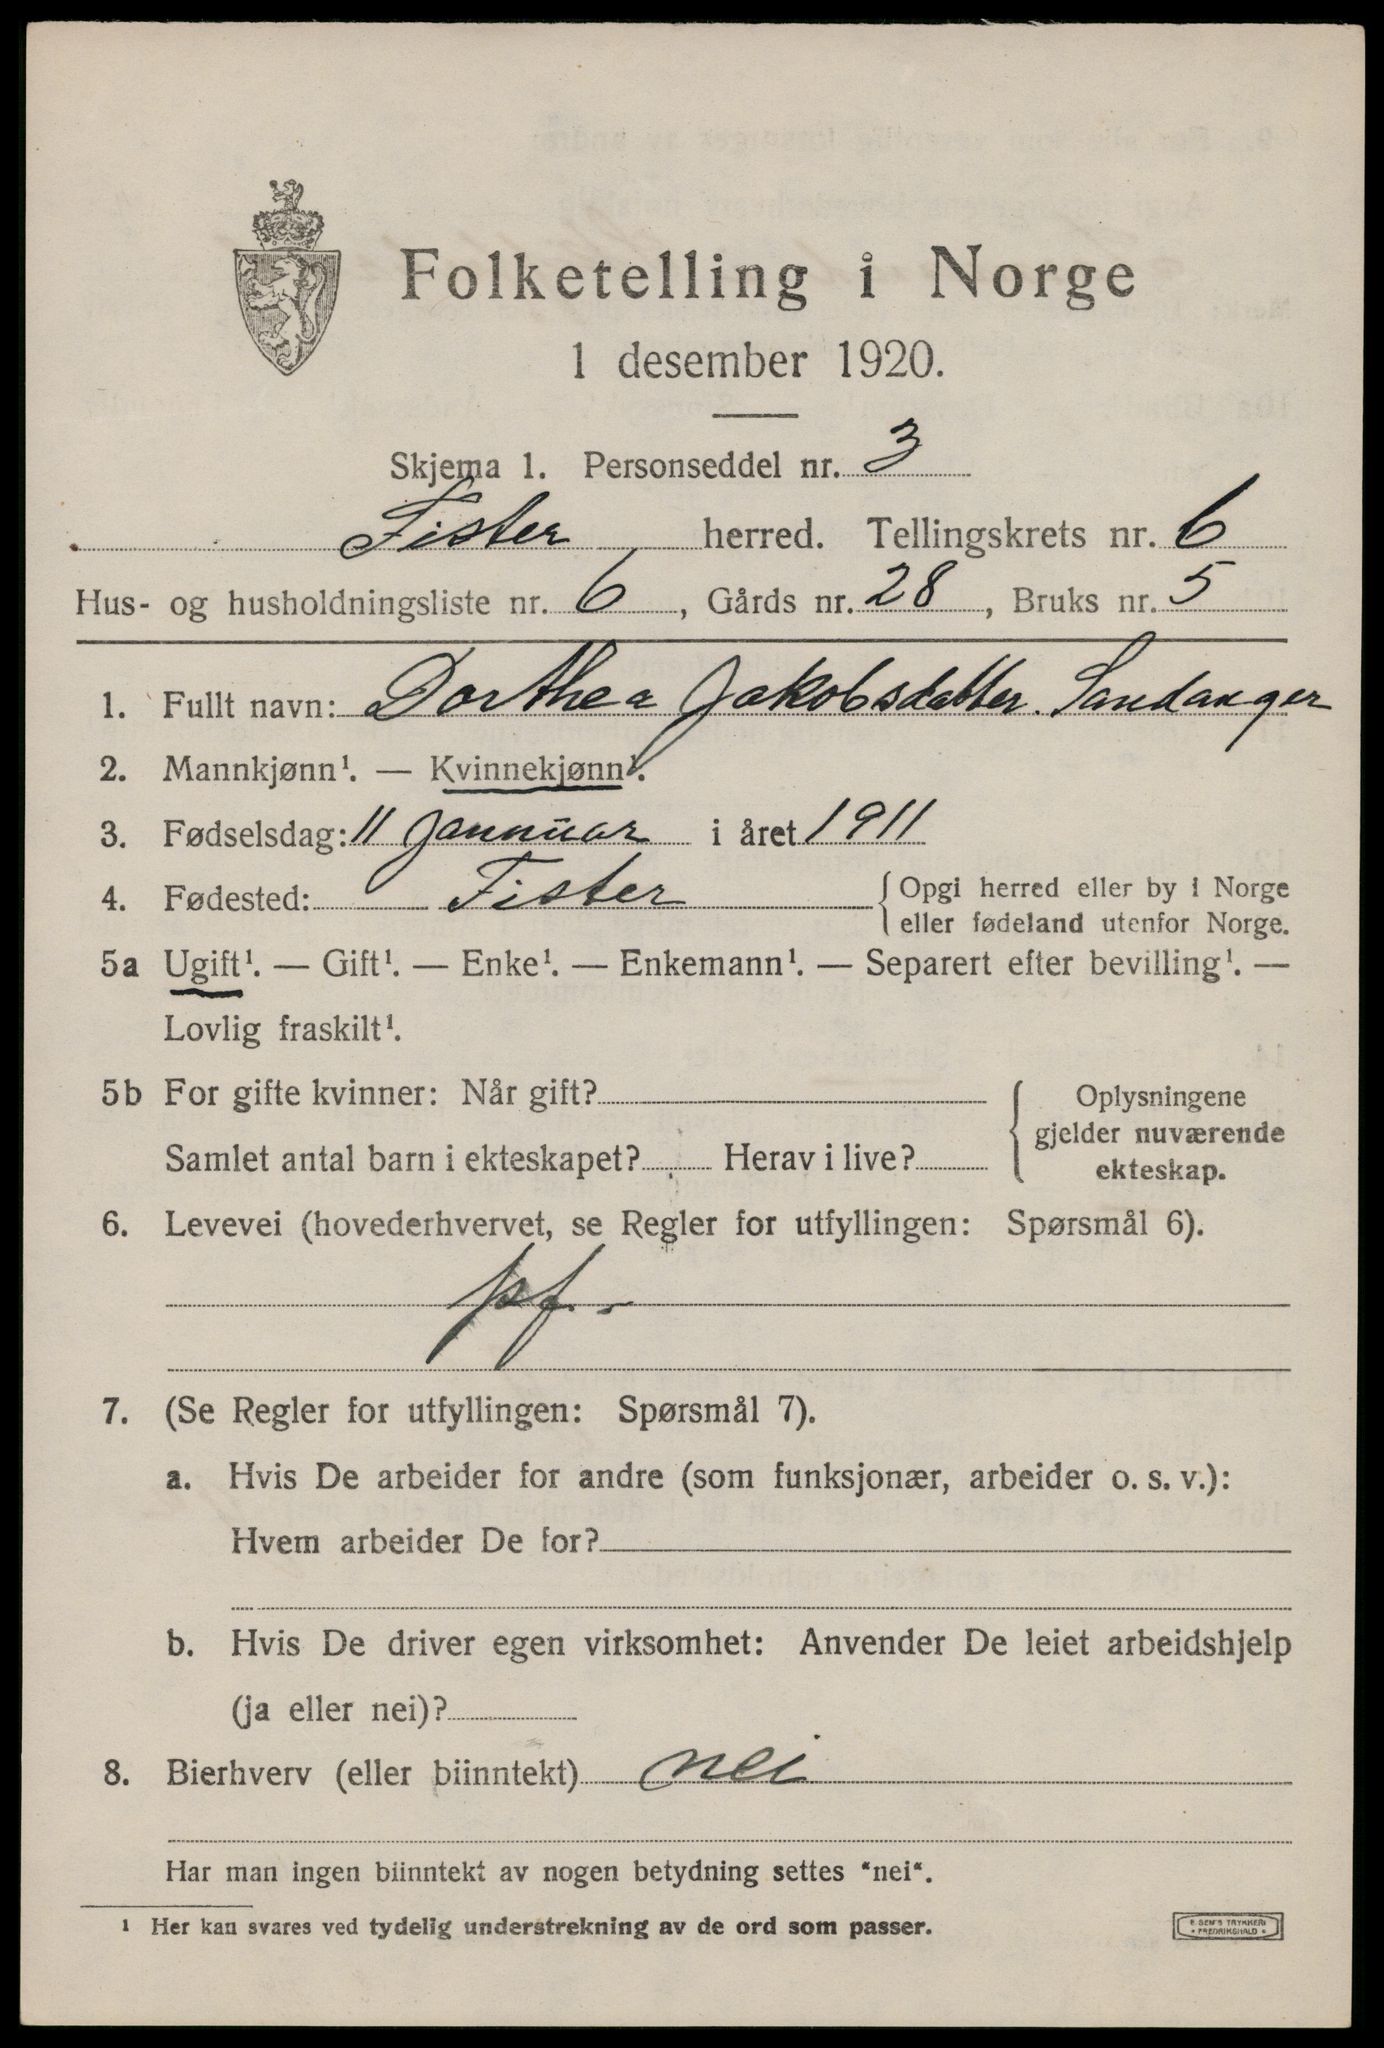 Folketelling i Norge
1 desember 1920.
Skjema 1. Personseddel nr. 3
Fister herred. Tellingskrets nr. 6
Hus- og husholdningsliste nr. 6, Gårds nr. 28, Bruks nr. 5
1. Fullt navn: Dorthea Jakobsdatter. Sandanger
2. Mannkjønn¹. — Kvinnekjønn¹.
3. Fødselsdag: 11 januar i året 1911
4. Fødested: Fister { Opgi herred eller by i Norge
eller fødeland utenfor Norge.
5a Ugift¹. — Gift¹. — Enke¹. — Enkemann¹. — Separert efter bevilling¹. —
Lovlig fraskilt¹.
5b For gifte kvinner: Når gift?
Samlet antal barn i ekteskapet? Herav i live?
{ Oplysningene
gjelder nuværende
ekteskap.
6. Levevei (hovederhvervet, se Regler for utfyllingen: Spørsmål 6).
pf.-
7. (Se Regler for utfyllingen: Spørsmål 7).
a. Hvis De arbeider for andre (som funksjonær, arbeider o. s. v.):
Hvem arbeider De for?
b. Hvis De driver egen virksomhet: Anvender De leiet arbeidshjelp
(ja eller nei)?
8. Bierhverv (eller biinntekt) nei
Har man ingen biinntekt av nogen betydning settes "nei".
¹ Her kan svares ved tydelig understrekning av de ord som passer.
E SEM'S TRYKKERI
• FREDRIKSHALD •